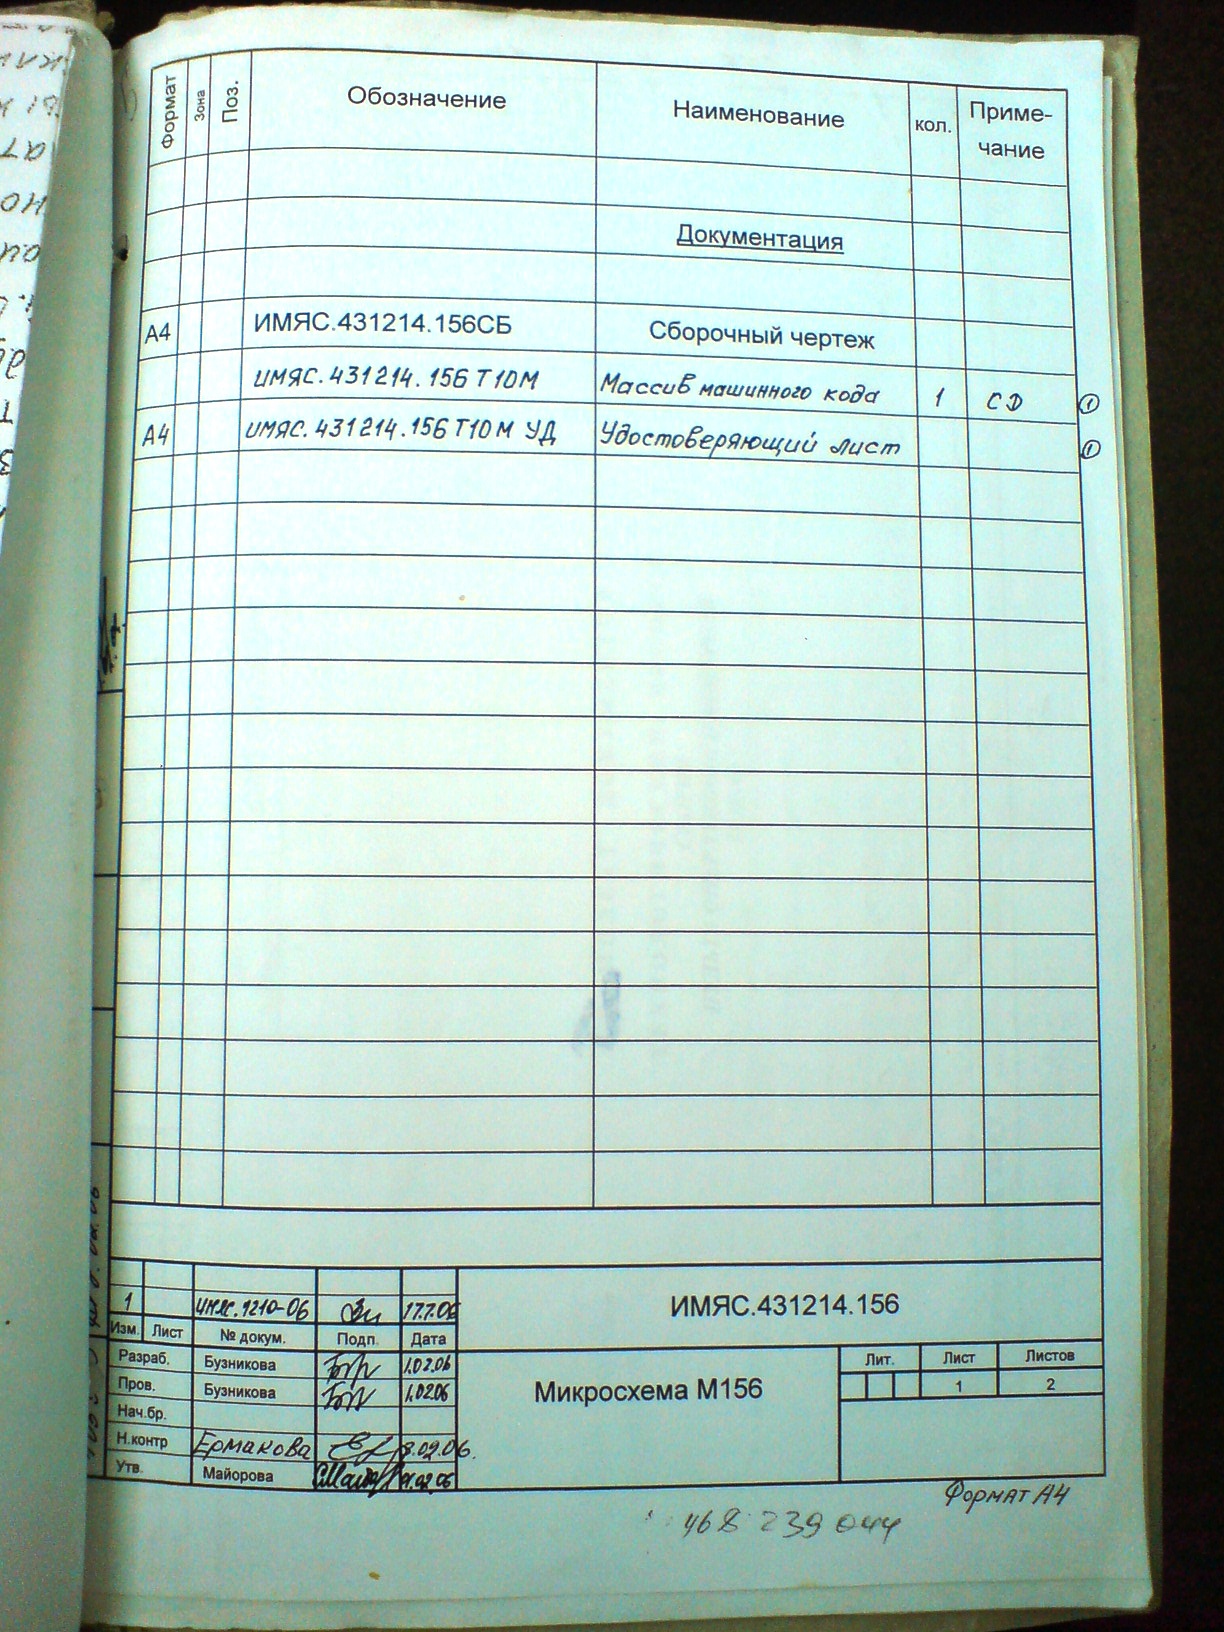 Формат Зона Поз. Обозначение Наименование кол. Приме-
чание
Документация
А4 ИМЯС.431214.156СБ Сборочный чертеж
ИМЯС.431214.156 Т10М Массив машинного кода 1 СD ①
А4 ИМЯС.431214.156 Т10М УД Удостоверяющий лист ①
1 ИМЯС.1210-06 17.7.06
Изм. Лист № докум. Подп. Дата
ИМЯС.431214.156
Разраб. Бузникова 1.02.06
Пров. Бузникова 1.02.06
Нач.бр.
Н.контр Ермакова 8.02.06.
Утв. Майорова 02.06
Микросхема М156
Лит. Лист Листов
1 2
Формат А4
468 239 044